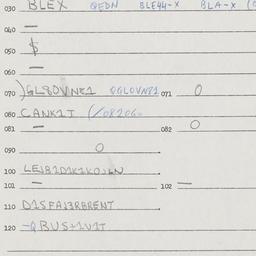 030 BLEX QEDN BLE44-X BLA-X
040 —
050 $
060 —
070 )GL80VNE1 QGLOVNP1 071 0
080 CANK1T (/08206
081 — 082 0
090 0
100 LEJB1D1K1KOJLN
101 — 102 —
110 D1SFA13RBRENT
120 -QBUS+1V1T